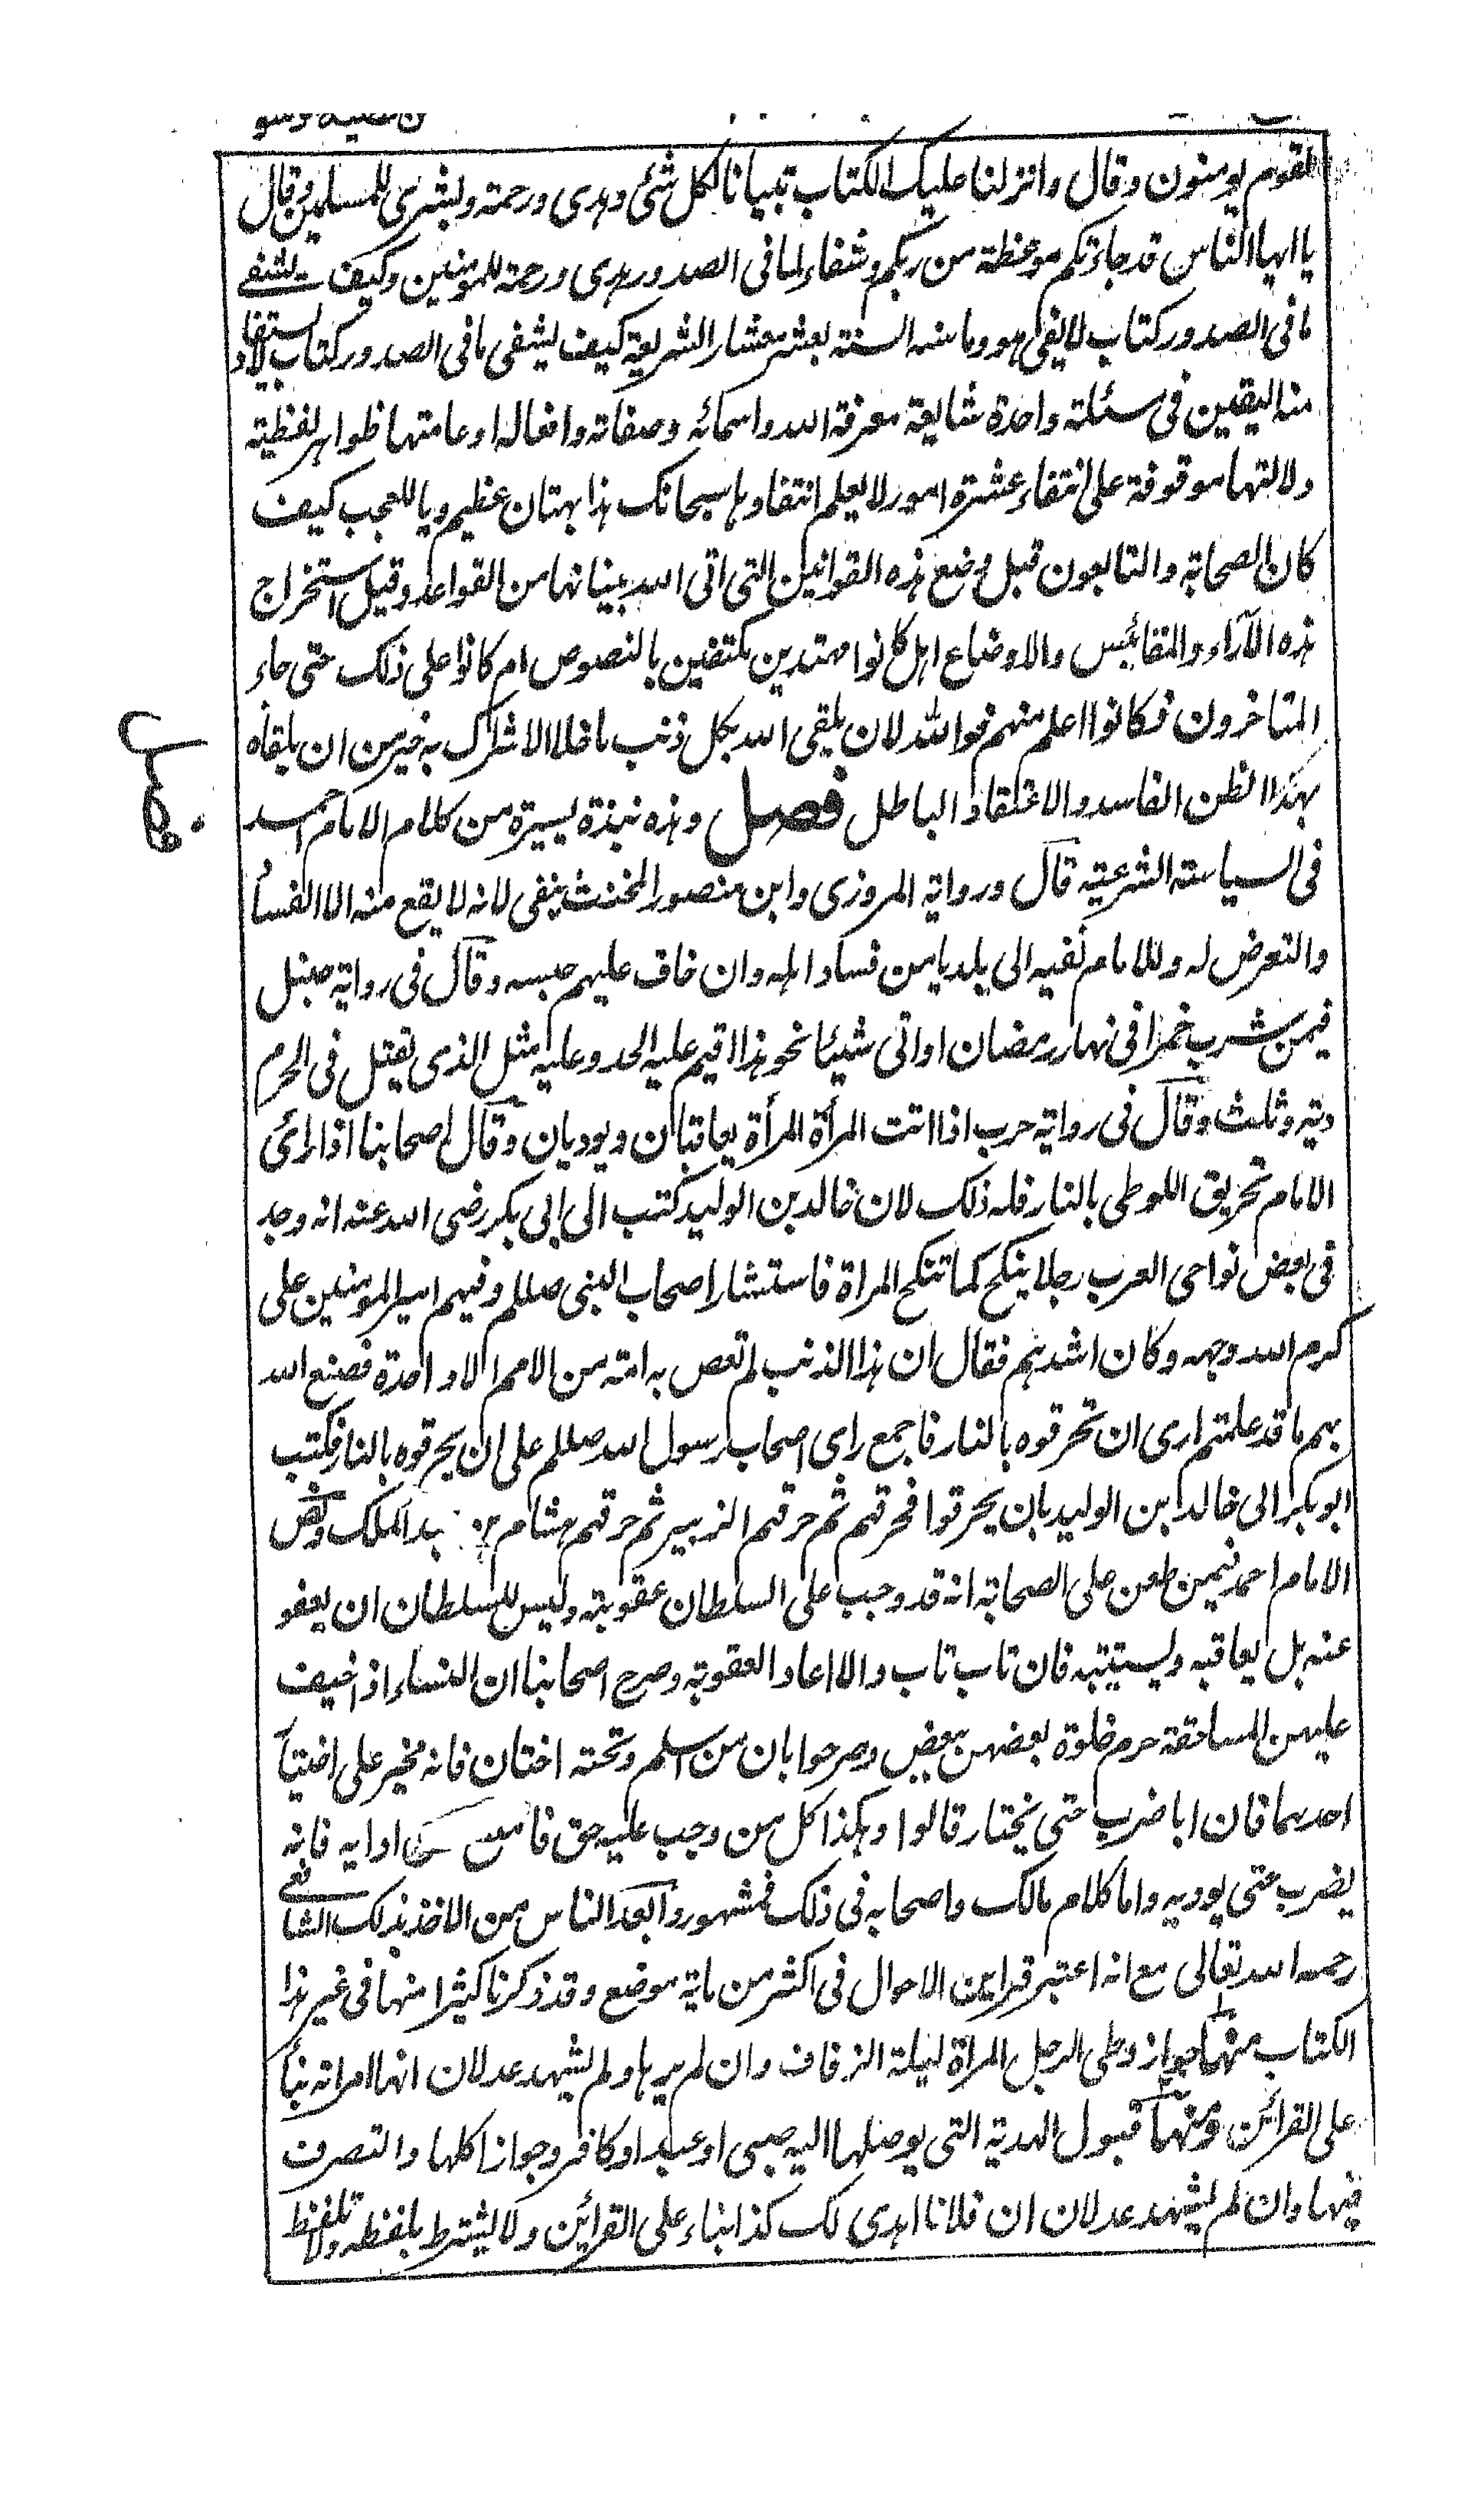 لقوم يومنون وقال وانزلنا عليك الكتاب تبيانا لكل شئ وهدى ورحمة وبشرى للمسلمين وقال
يا ايها الناس قد جاءتكم موعظة من ربكم وشفاء لما فى الصدور وهدى ورحمة للمومنين وكيف يشفى
ما فى الصدور كتاب لا يفى هو وما بينه السنة بعشر معشار الشريعة كيف يشفى ما فى الصدور كتاب لا يستفاد
منه اليقين فى مسئلة واحدة شايعة معرفة الله واسمائه وصفاته وافعاله او عامتها ظواهر لفظية
دلالتها موقوفة على انتفاء عشرة امور لا يعلم انتفاوها سبحانك هذا بهتان عظيم ويا للعجب كيف
كان الصحابة والتابعون قبل وضع هذه القوانين التى اتى الله بنيانها من القواعد وقبل استخراج
هذه الآراء والمقائيس والاوضاع اهل كانوا مهتدين مكتفين بالنصوص ام كانوا على ذلك حتى جاء
المتاخرون فكانوا اعلم منهم فوالله لان يلقى الله بكل ذنب ما خلا الاشراك به خير من ان يلقاه
بهكذا الظن الفاسد والاعتقاد الباطل فصل وهذه نبذة يسيرة من كلام الامام احمد
فى السياسة الشرعية قال ورواية المروزى وابن منصور المخنث ينفى لانه لا يقع منه الا الفساد
والتعرض له وللامام نفيه الى بلد يامن فساد اهله وان خاف عليهم حبسه وقال فى رواية حنبل
فيمن شرب خمرا فى نهار رمضان او اتى شيئا نحو هذا اقيم عليه الحد وعليه مثل الذى يقتل فى الحرم
دية وثلث وقال فى رواية حرب اذا اتت المرأة المرأة يعاقبان ويوديان وقال اصحابنا اذا رائ
الامام تحريق اللوطى بالنار فله ذلك لان خالد بن الوليد كتب الى ابى بكر رضى الله عنه انه وجد
فى بعض نواحى العرب رجلا ينكح كما تنكح المراة فاستشار اصحاب النبى صللم وفيهم امير المومنين على
كرم الله وجهه وكان اشدهم فقال ان هذا الذنب لم تعص به امة من الامم الا واحدة فصنع الله
بهم ما قد علمتم ارى ان تحرقوه بالنار فاجمع راى اصحاب رسول الله صللم على ان يحرقوه بالنار فكتب
ابوبكر الى خالد بن الوليد بان يحرقوا فحرقهم ثم حرقهم الزبير ثم حرقهم هشام بن عبد الملك ونص
الامام احمد فيمن طعن على الصحابة انه قد وجب على السلطان عقوبته وليس للسلطان ان يعفو
عنه بل يعاقبه ويستتيبه فان تاب تاب والا اعاد العقوبة وصرح اصحابنا ان النساء اذا خيف
عليهن المساحقة حرم خلوة بعضهن ببعض وصرحوا بان من اسلم وتحته اختان فانه مخير على اختيار
احدهما فان ابا ضرب حتى يختار قالوا وهكذا كل من وجب عليه حق فامتنع من ادايه فانه
يضرب حتى يوديه واما كلام مالك واصحابه فى ذلك فمشهور وابعد الناس من الاخذ بذلك الشافعى
رحمه الله تعالى مع انه اعتبر قراين الاحوال فى اكثر من ماية موضع وقد ذكرنا كثيرا منها فى غير هذا
الكتاب منها جواز وطى الرجل المراة ليلة الزفاف وان لم يرها ولم يشهد عدلان انها امراته بناء
على القرائن ومنها قبول الهدية التى يوصلها اليه صبى او عبد او كافر وجواز اكلها والتصرف
فيها وان لم يشهد عدلان ان فلانا اهدى لك كذا بناء على القرائن ولا يشترط بلفظه ولا تلفظ